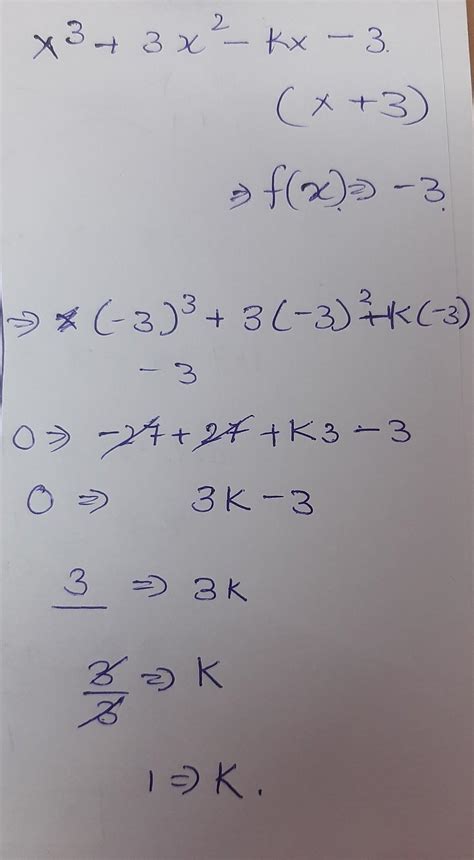 x³ + 3x² - Kx - 3.
(x + 3)
⇒ f(x) ⇒ -3.
⇒ (-3)³ + 3(-3)² - K(-3)
- 3
0 ⇒ -27 + 27 + K3 - 3
0 ⇒ 3K - 3
3 ⇒ 3K
3/3 ⇒ K
1 ⇒ K.